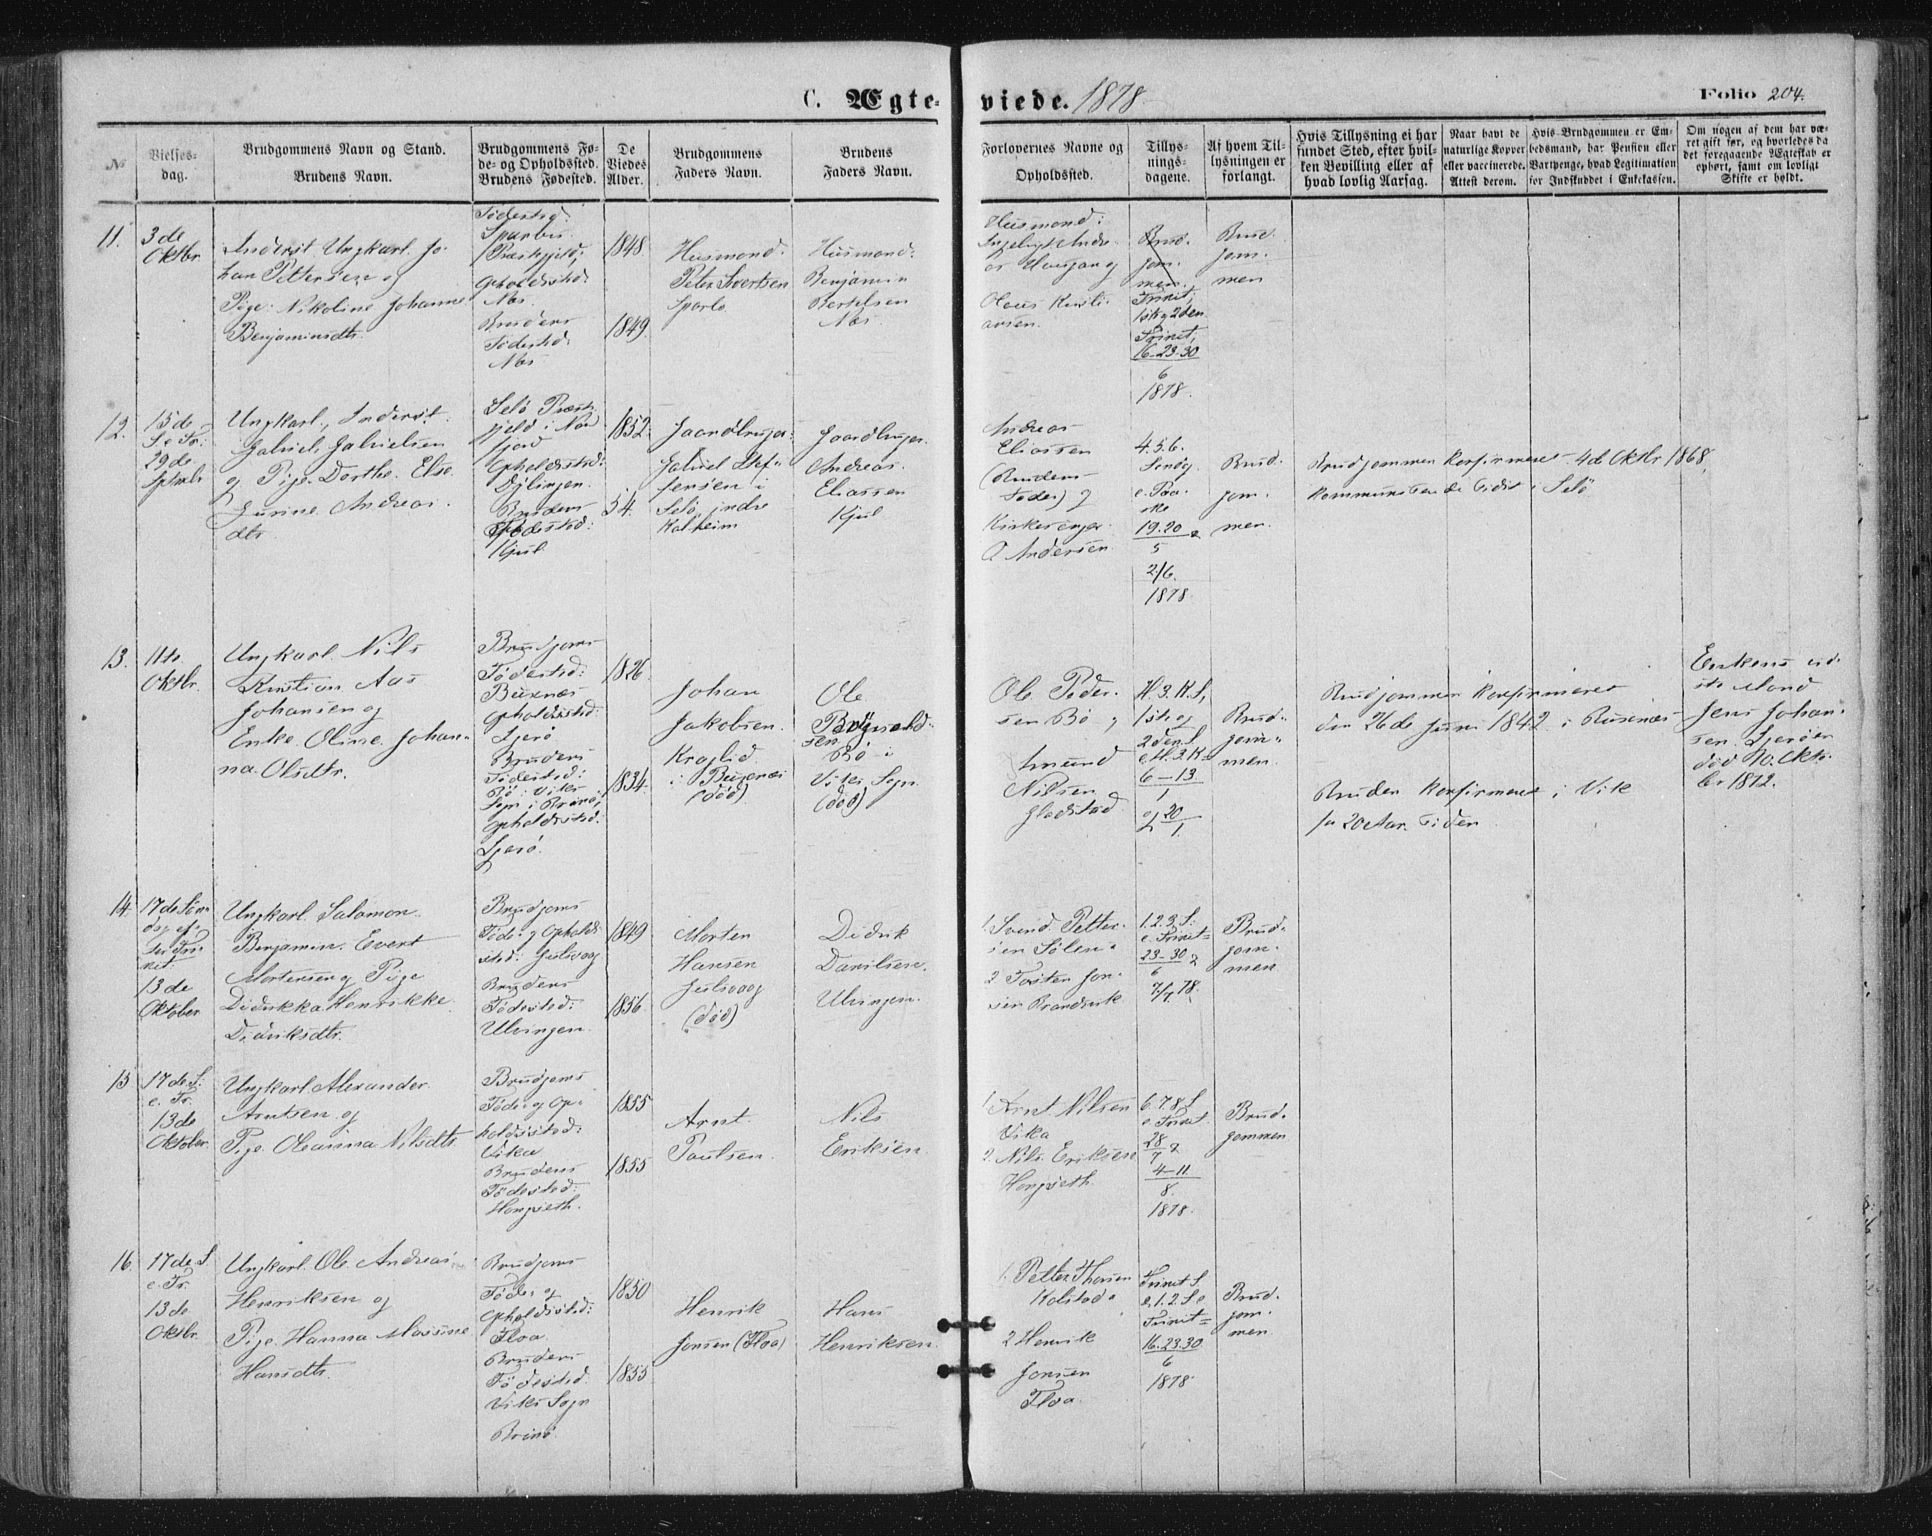 C. Ægte-
viede. 1878
Folio 204.
No
Vielses-
dag.
Brudgommens Navn og Stand.
Brudens Navn.
Brudgommens Fø-
de- og Opholdssted.
Brudens Fødested.
De
Viedes
Alder.
Brudgommens
Faders Navn.
Brudens
Faders Navn.
Forlovernes Navne og
Opholdssted.
Tillys-
nings-
dagene.
Af hvem Til-
lysningen er
forlangt.
Hvis Tillysning ei har
fundet Sted, efter hvil-
ken Bevilling eller af
hvad lovlig Aarsag.
Naar havt de
naturlige Kopper
eller vaccinerede.
Attest derom.
Hvis Brudgommen er Em-
bedsmand, har Pension eller
Vartpenge, hvad Legitimation
for Indskuddet i Enkekassen.
Om nogen af dem har væ-
ret gift før, og hvorledes da
det foregaaende Ægteskab er
ophørt, samt om lovligt
Skifte er holdt.
11.
3de
Oktbr
Inderst Ungkarl Jo-
han Petersen og
Pige Nikoline Johanne
Benjaminsdtr.
Fødested:
Sparbu
Præstgjeld:
Opholdssted:
Næs.
Brudens
Fødested:
Næs
1848.
1849.
Husmand
Peter Sivertsen
Sparbo
Husmand
Benjamin
Bertelsen
Næs.
Husmand:
Ingebrigt Andre-
as Haugan og
Olaus Kristi-
ansen.
Brud-
gom-
men.
Trinit,
1ste og 2den
Trinit,
16-23-30
6
1878.
Brud-
gom-
men
12.
15de
S. e. Tr:
29de
Septbr
Ungkarl, Inderst
Gabriel Gabrielsen
og Pige Dorthe Else
Gurine Andreas-
dtr.
Selø Præst-
gjeld i Nor-
fjord
Opholdssted:
Dylingen.
Brudens
Fødested:
Kjul
1852.
54.
Gaardbruger
Gabriel Stef-
fensen i
Selø, indre
Kalheim
Gaardbruger
Andreas
Eliassen
Kjul
Andreas
Eliassen
(Brudens
Fader) og
Kirkesanger
O Andersen.
4.5.6.
Søndg.
e. Paa-
ske
19.20 &
5
2/6.
1878
Brud-
gom-
men.
Brudgommen konfirmeret 4de Oktbr 1868,
Kommunserende Tidst i Selø
13.
11te
Oktbr.
Ungkarl. Nils
Kristian Aas
Johansen og
Enke. Oline Johan-
na Olsdtr.
Brudgoms
Fødested:
Buxnæs
Opholdssted:
Gjerø
Brudens
Fødested:
Bø i Viks
Sogn i Brønø,
Opholdssted:
Gjerø.
1826.
1834.
Johan
Jakobsen
Kraglid.
i Buxnæs
(død)
Ole
Brynald-
sen
Bø i
Viks Sogn
(død)
Ole Peder-
sen Bø og
Amund
Nilsen
Gladstad.
H. 3. K. S,
1ste og
2den S
e. H. 3. K.
6-13
1
og 20
1.
Brud-
gom-
men.
Brudgommen konfirmeret
den 26de Juni 1842 i Buxnæs
Bruden konfirmeret i Vik
for 20 Aar siden
Enkens sid-
ste Mand
Jens Johan-
sen Gjerøen
død 10. Okto-
ber 1872.
14.
17de Søn-
dag ef-
ter Tri-
nit.
13de
Oktober
Ungkarl. Salamon
Benjamin Evert
Mortensen og Pige
Didrikka Henrikke
Didriksdtr.
Brudgoms
Føde- og Opholds-
sted: Julsvaag
Brudens
Fødested:
Ulvingen.
1849
1856.
Morten
Hansen
Julsvaag
(død)
Didrik
Danilsen.
Ulvingen.
1. Svend Petter-
sen Sølen-
2 Torsten Jon-
sen Brandvik
1.2.3. S:
e. Trinit=
23-30 &
6
7/7 78.
Brud-
gom-
men
15
17de S:
e. Tr.
13de
Oktober
Ungkarl Alexander
Arntsen og
Pige Oleanna Nilsdtr.
Brudgoms
Føde- og Op-
holdssted:
Vika
Brudens
Fødested:
Hongseth.
1855
1855
Arnt
Paulsen.
Nils
Eriksen.
1. Arnt Nilsen
Vika
2. Nils Eriksen
Hongseth.
6.7.8 S
e. Trinit.
28 &
7
4-11
8.
1878.
Brud-
gommen
16.
17de S
e. Tr.
13de
Oktbr.
Ungkarl. Ole Andreas
Henriksen og
Pige. Hanna Massine
Hansdtr.
Brudgoms
Føde- og
Opholdssted:
Floa.
Brudens
Fødested.
Viks Sogn
Brønø.
1850
1855
Henrik
Jonsen (Floa)
Hans
Henriksen.
1. Petter Thorsen
Kolstad &
2 Henrik
Jonsen
Floa.
Trinit S
& 1.2. S e
Trinit=
16.23.30
6
1878
Brud-
gom-
men